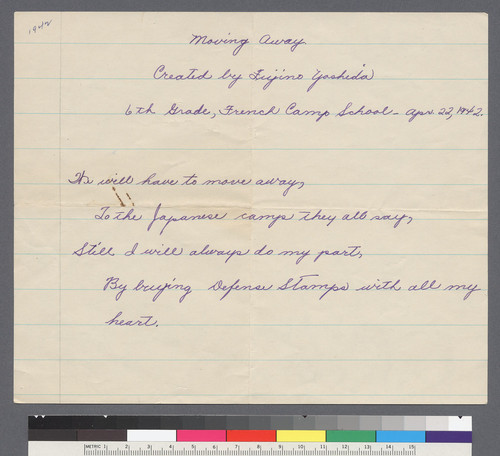 1942
Moving Away
Created by Fujino Yoshida
6th Grade, French Camp School - Apr. 22, 1942.
We will have to move away,
To the Japanese camps they all say,
Still I will always do my part,
By buying Defense Stamps with all my
heart.
METRIC 1 2 3 4 5 6 7 8 9 10 11 12 13 14 15